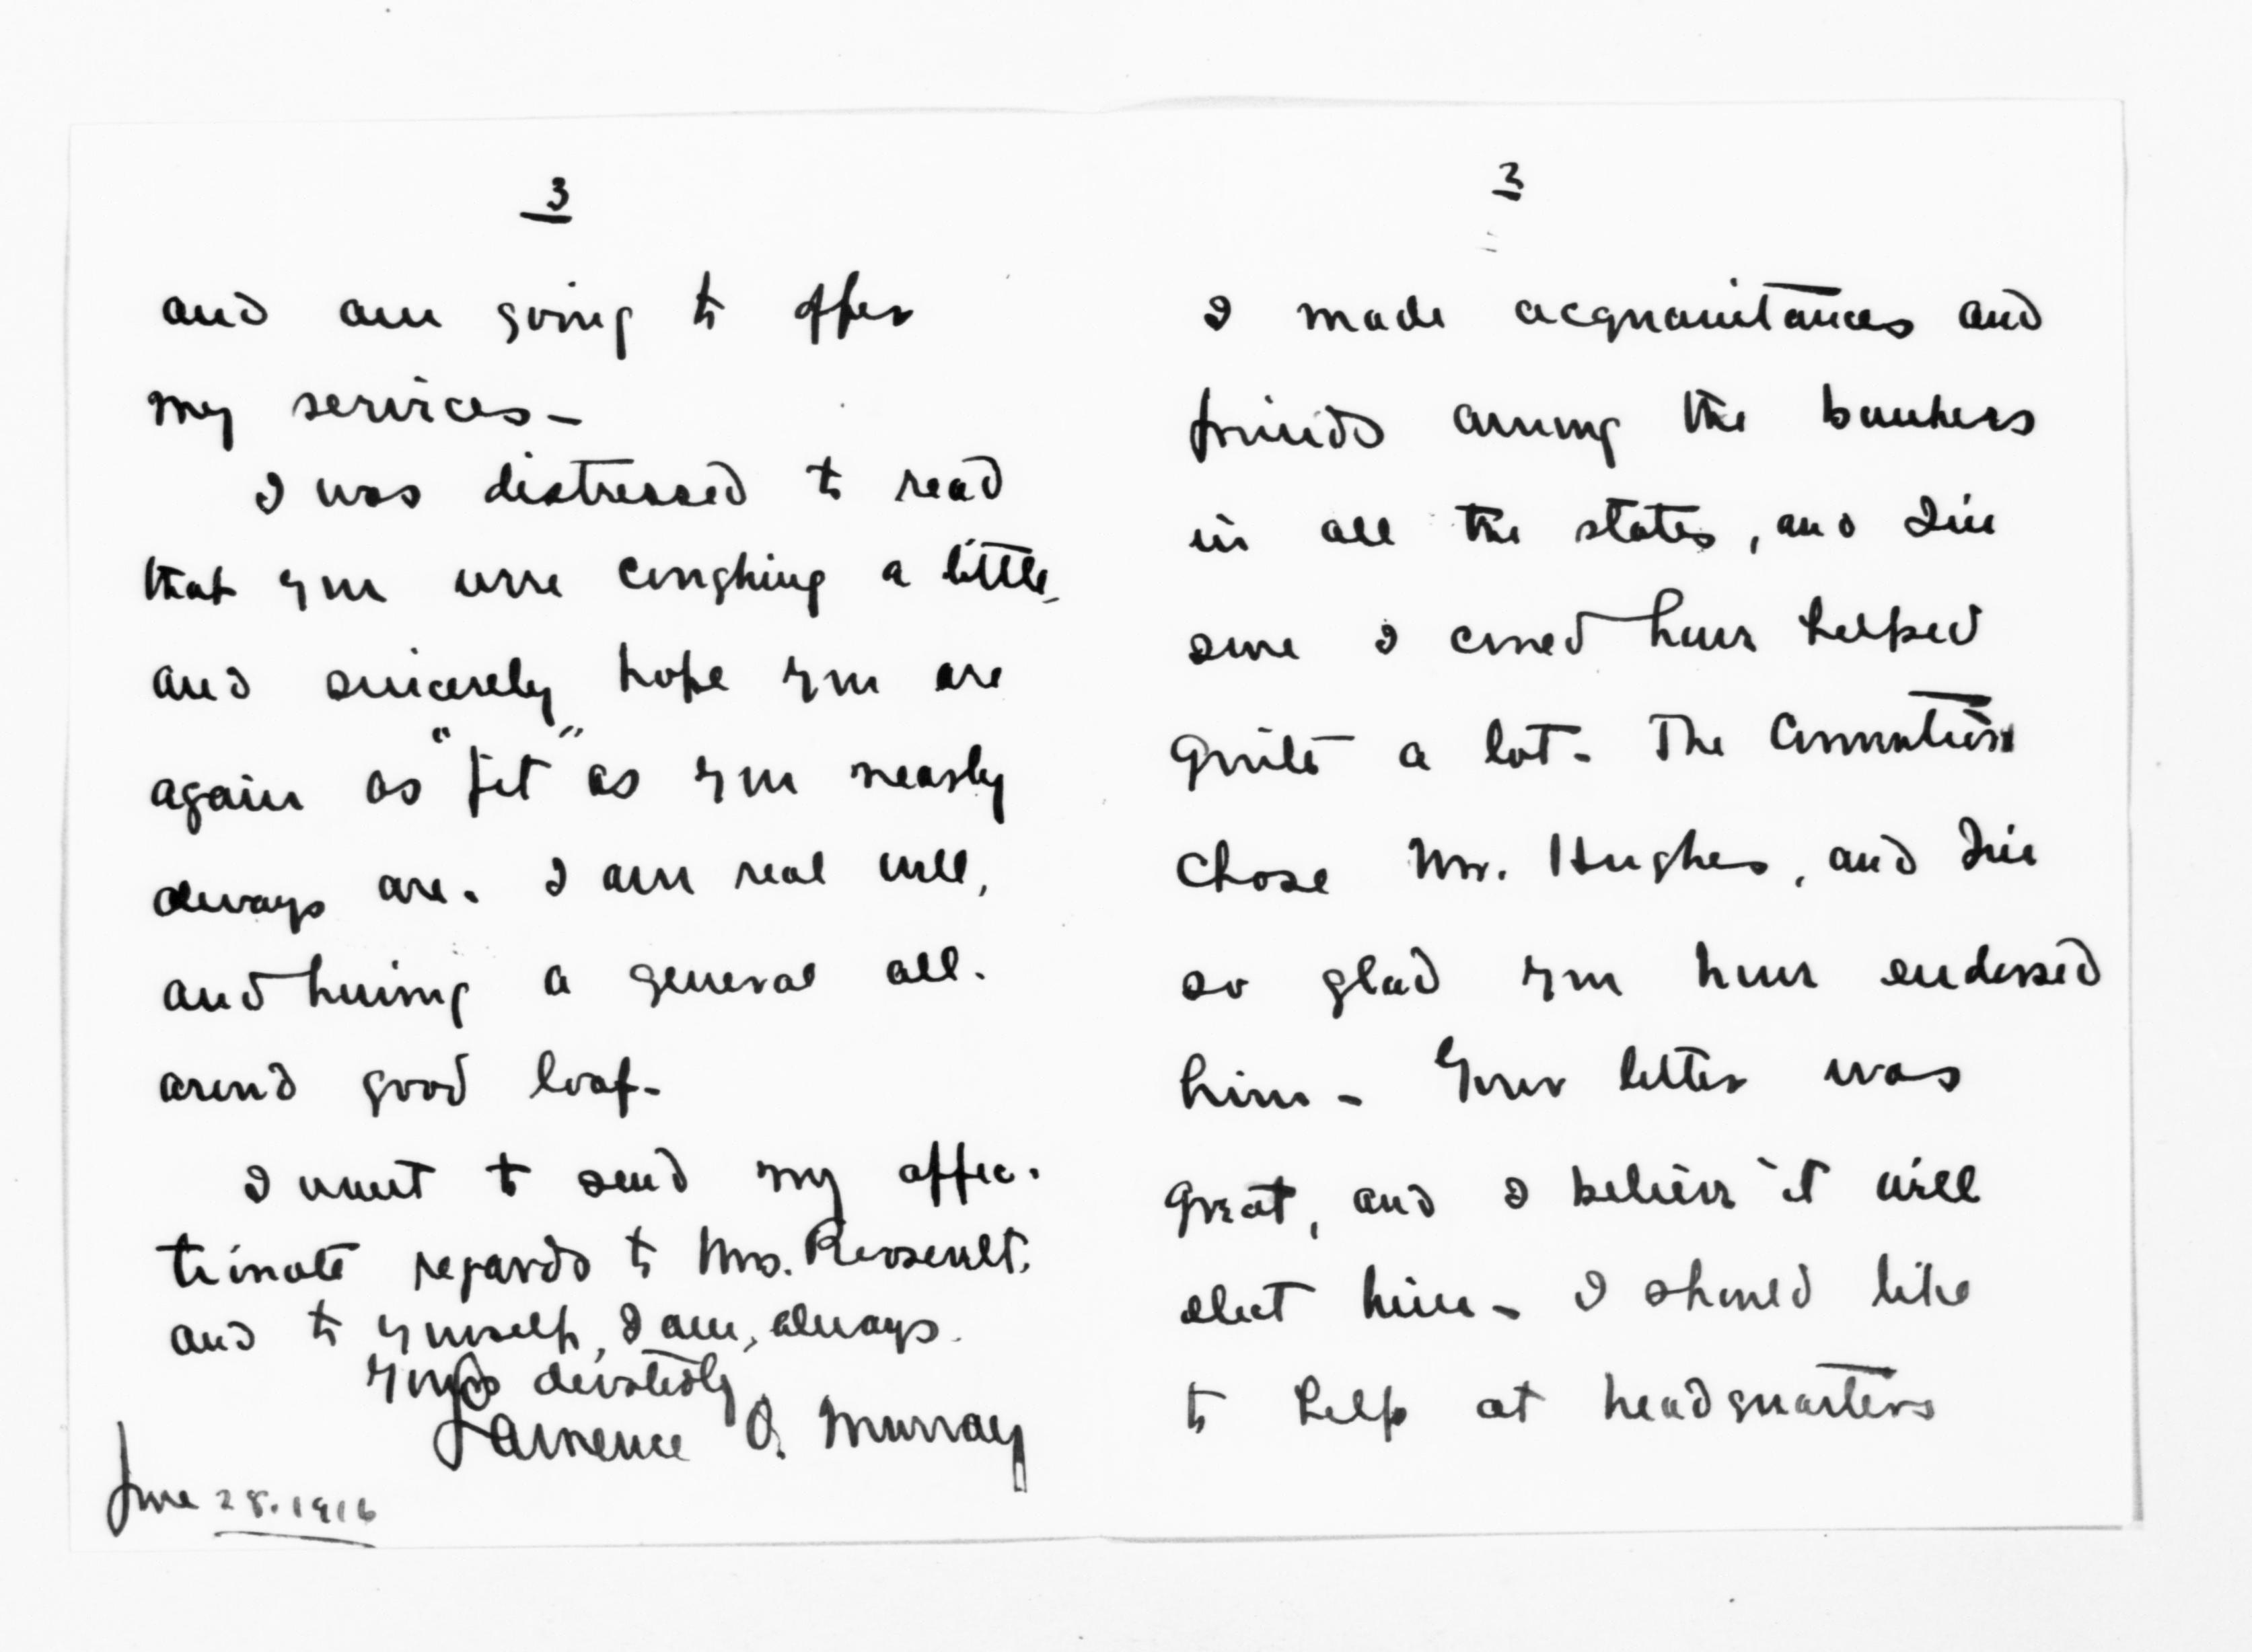 3
I made acquaintances and
friends among the bankers
in all the states, and I'm
sure I could have helped
quite a lot - The Convention
chose Mr. Hughes, and I'm
so glad you have endorsed
him - Your letter was
great, and I believe it will
elect him - I should like
to help at headquarters
3
and am going to offer
my services -
I was distressed to read
that you were coughing a little
and sincerely hope you are
again as "fit" as you nearly
always are. I am real well,
and having a general all-
around good loaf -
I want to send my affec-
tionate regards to Mrs. Roosevelt,
and to yourself, I am, always
yours devotedly
Lawrence O. Murray
June 28. 1916